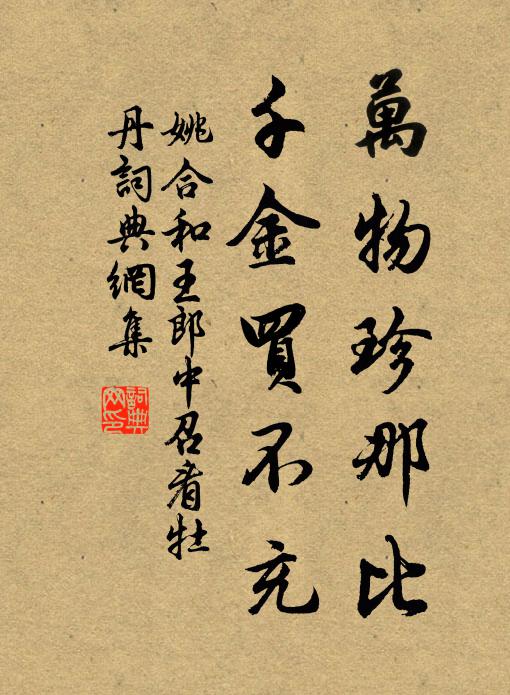 萬物珍那比
千金買不充
姚合和王郎中召看牡
丹詞典網集
詞典網印